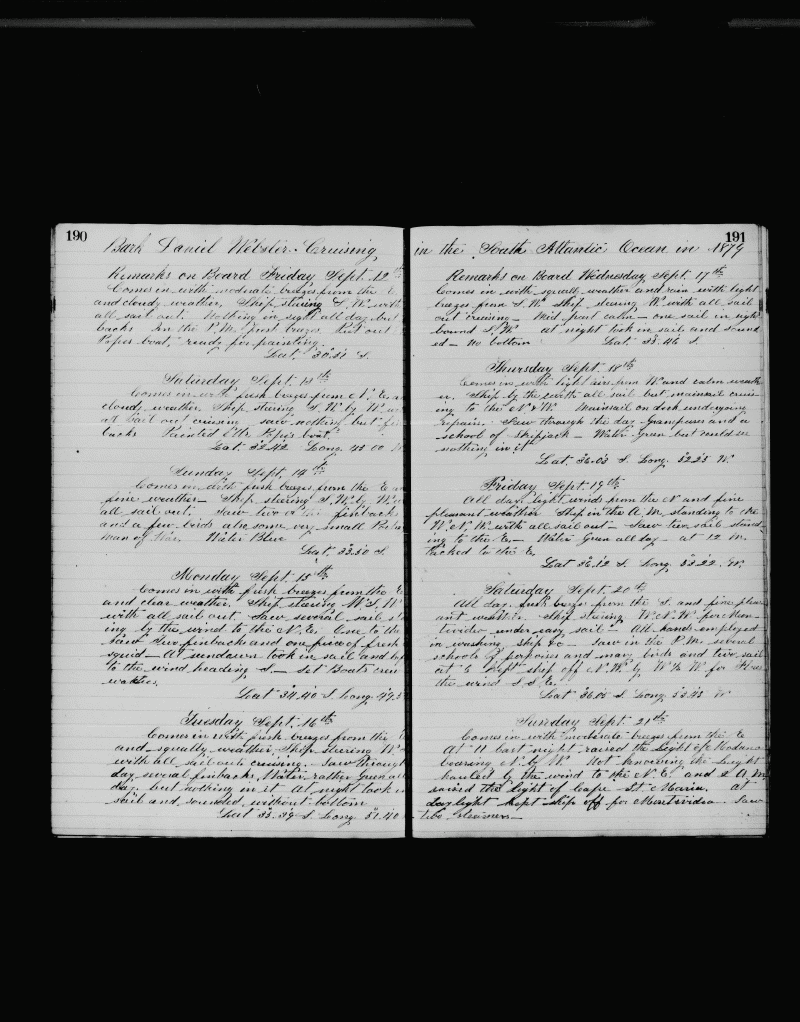 190
Bark Daniel Webster Cruising
Remarks on Board Friday Sept. 12th
Comes in with moderate breezes from the E
and cloudy weather, Ship stering S. W. with
all sail out. Nothing in sight all day but
backs. In the P.M. fresh breezes Put out
boat, ready for painting.
Lat. 30.31 S.
Saturday Sept. 13th
Comes in with fresh breezes from N. E. an
cloudy weather. Ship stering S. W. by W.
all sail out cruisin saw nothing but fin
backs Painted boat.
Lat. 32.42 Long. 43 00 W
Sunday Sept. 14th
Comes in with fresh breezes from the E an
fine weather - Ship steering S. W. by W.
all sail out. Saw two or finbacks
and a few birds also some very small
man of War. Water Blue
Lat. 33.50 S
Monday Sept. 15th
Comes in with fresh breezes from the E
and clear weather. Ship stering W. S. W
with all sail out. Saw several sail
ing by the wind to the N. E. One to the
Saw two finbacks and one piece of fresh
squid - At sundown took in sail and
to the wind heading S. - Set Boats crew
watches.
Lat 34.40 S. Long. 49.5
Tuesday Sept. 16th
Comes in with fresh breezes from the
and squally weather, Ship steering W
with all sail out cruising. Saw through
day several finbacks, Water rather Green all
day, but nothing in it At night took in
sail and sounded without bottom
Lat 35.39 S. Long. 51.40
191
in the South Atlantic Ocean in 1879
Remarks on Board Wednesday Sept. 17th
Comes in with squall weather and rain with light
breezes from S. W. Ship stering W. with all sail
out cruising - Mid part calm - one sail in sight
bound S. W. at night took in sail and sound
ed - no bottom Lat. 35.46 S.
Thursday Sept. 18th
Comes in with light airs from W. and calm weath
er. Ship by the with all sail but mainsail cruis
ing to the N. W. Mainsail on deck undergoing
repairs. Saw through the day Grampuses and a
school of Skipjack - Water Green but could see
nothing in it
Lat. 36.03 S. Long. 52.25 W.
Friday Sept. 19th
All day light winds from the N and fine
pleasant weather Ship in the A. M. standing to the
W. N. W. with all sail out - Saw two sail stand
ing to the E. - Water Green all day - at 12 M.
tacked to the E.
Lat 36.12 S. Long. 53.22. W.
Saturday Sept. 20th
All day fresh breezes from the S. and fine pleas
ant weather. Ship stering W. N. W. for Mon
tivideo under easy sail - All hands employed
in washing ship &c - Saw in the P. M. several
schools of porposes and many birds and two sail
at 6 kept ship off N. W. by W ½ W for
the wind S. S. E.
Lat 36.05 S Long. 53.43 W
Sunday Sept 21st
Comes in with moderate breezes from the E
At 11 last night raised the light of
bearing N. by W. Not knowing the Light
hauled by the wind to the N. E. and 2 A. M.
raised the light of Cape St. Maria. at
Daylight kept ship off for Montivideo. Saw
two Steamers -